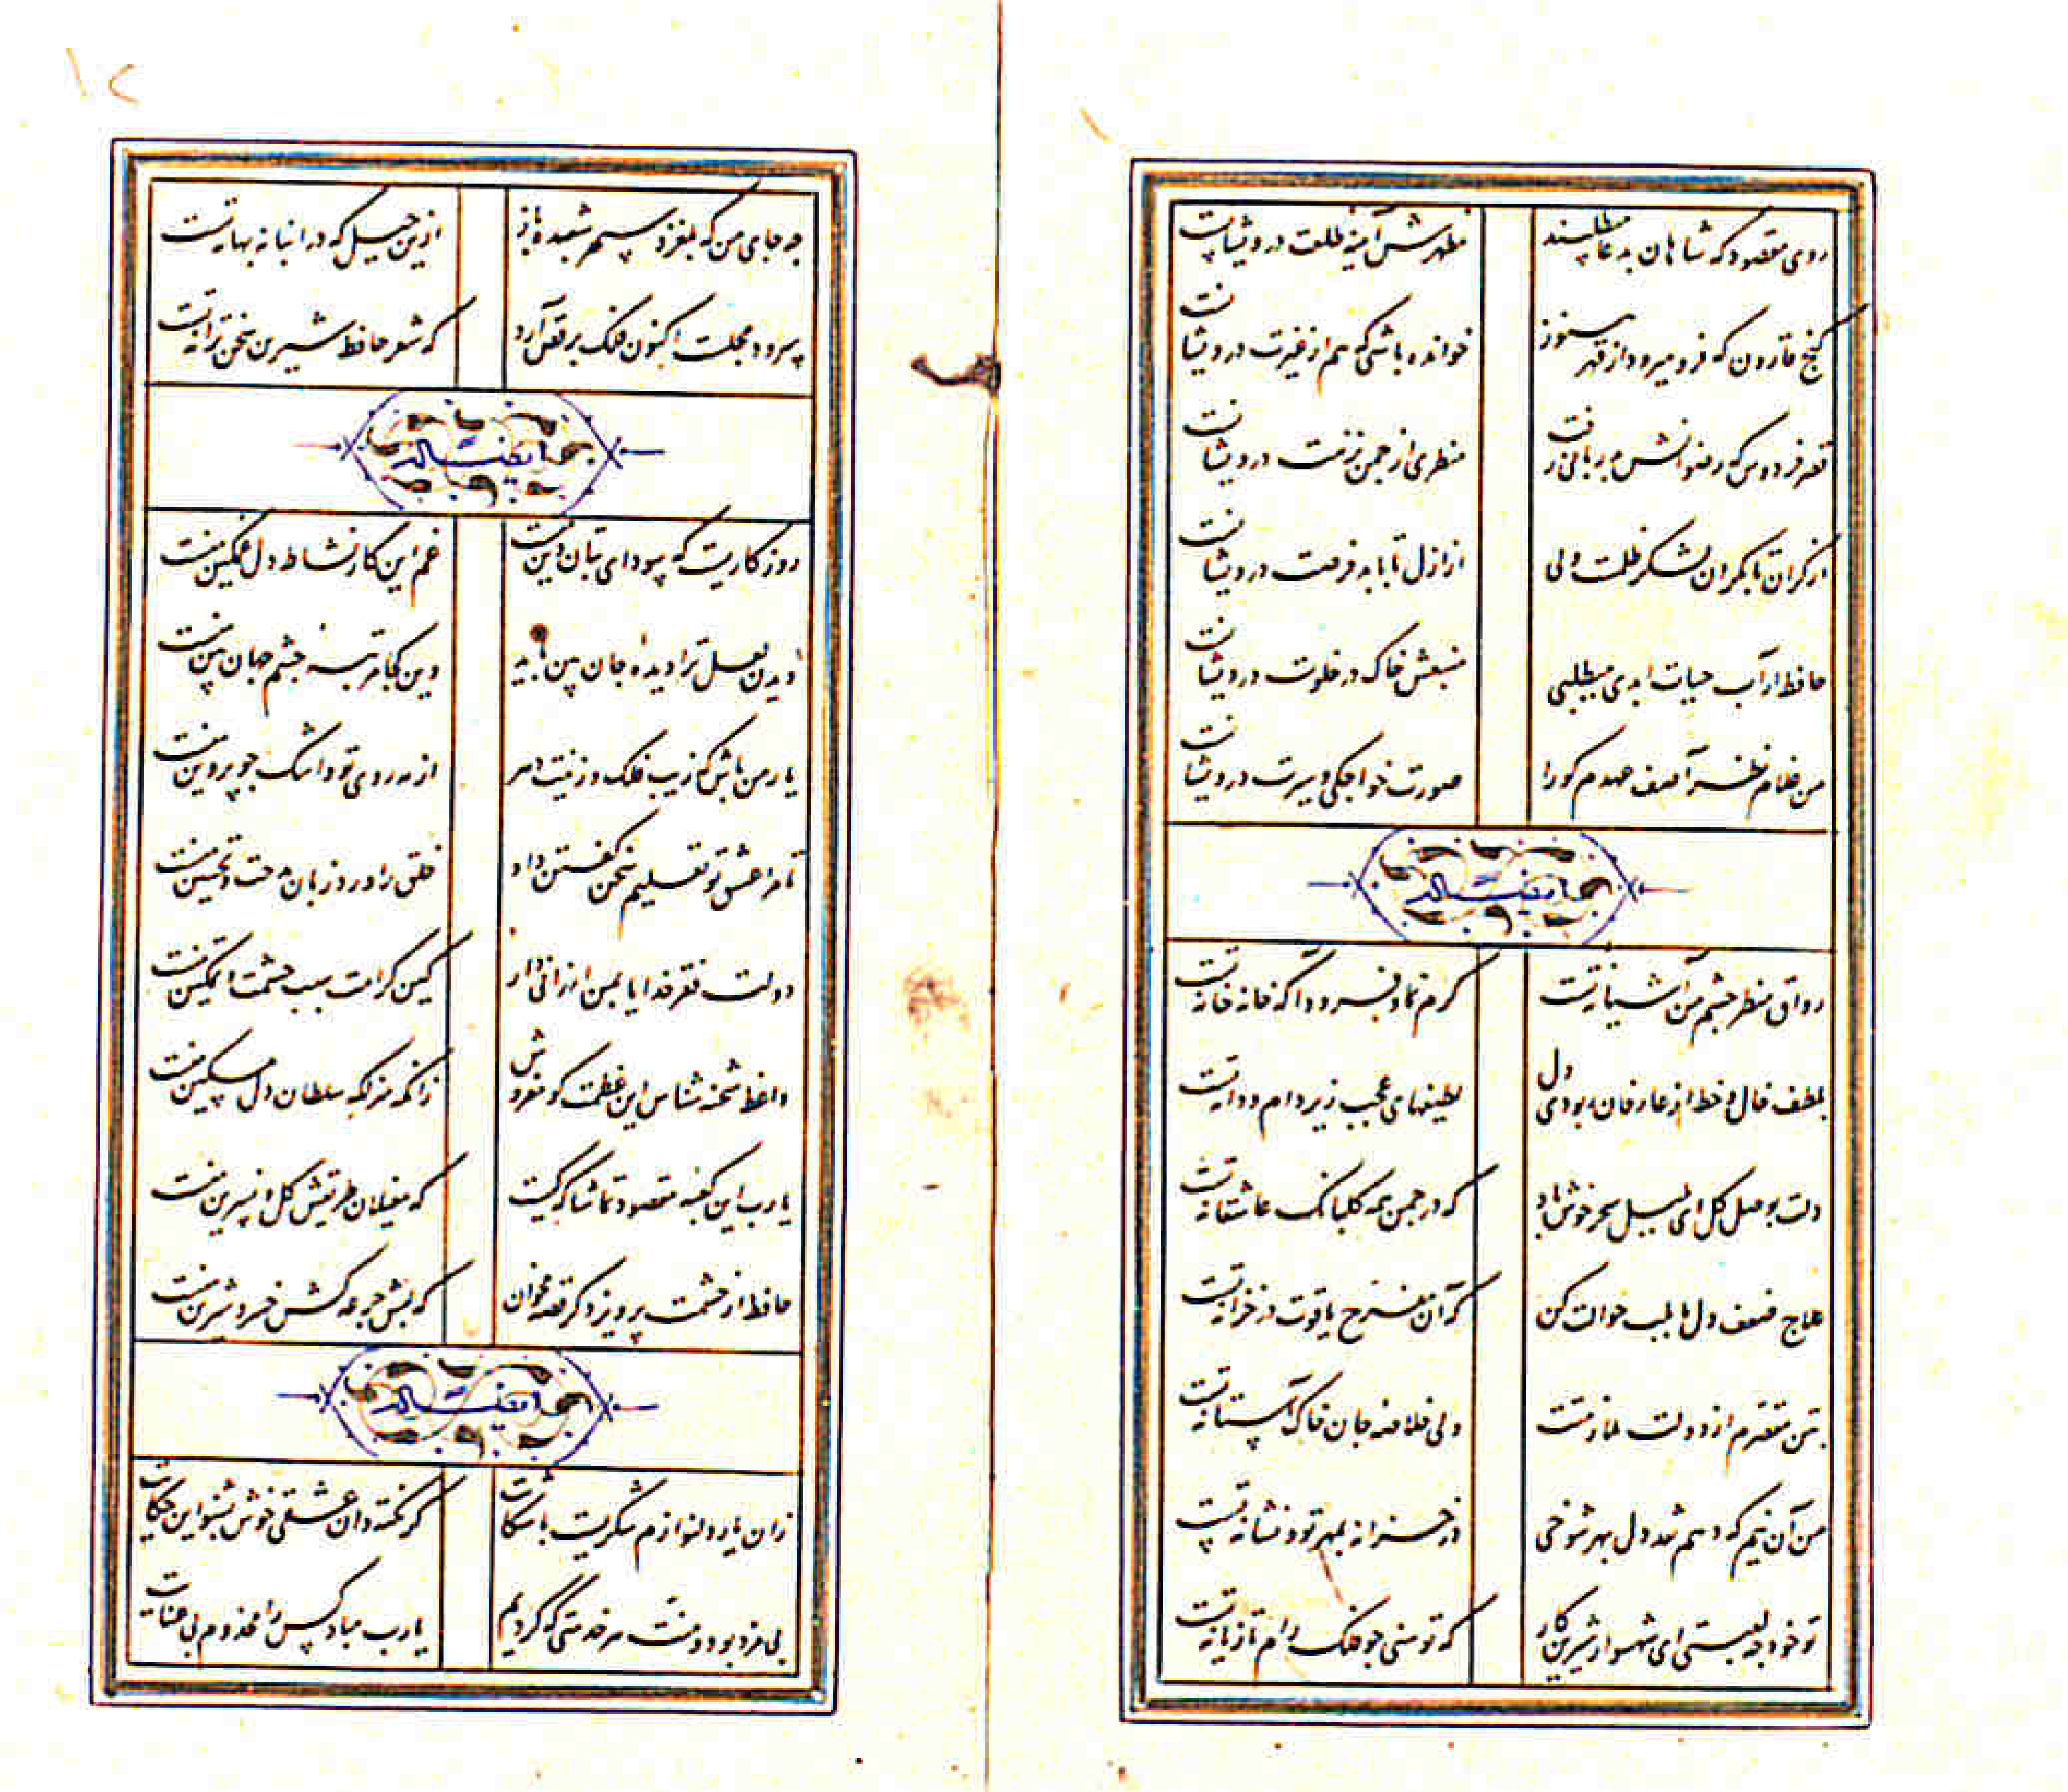 روی مقصود که شاهان بدعا میطلبند
مظهرش آینه طلعت درویشانست
گنج قارون که فرو میرود از قهر هنوز
خوانده باشی که هم از غیرت درویشانست
قصر فردوس که رضوانش بدربانی رفت
منظری از چمن نزهت درویشانست
از کران تا بکران لشکر ظلمت ولی
از ازل تا بابد فرصت درویشانست
حافظ ار آب حیات ابدی میطلبی
منبعش خاک در خلوت درویشانست
من غلام نظر آصف عهدم کو را
صورت خواجگی و سیرت درویشانست
رواق منظر چشم من آشیانه تست
کرم نما و فرود آ که خانه خانه تست
بلطف خال و خط از عارفان ربودی دل
لطیفهای عجب زیر دام و دانه تست
دلت بوصل گل ای بلبل سحر خوش باد
که در چمن همه گلبانگ عاشقانه تست
علاج ضعف دل ما بلب حوالت کن
که آن مفرح یاقوت در خزانه تست
بتن مقصرم از دولت ملازمتت
ولی خلاصه جان خاک آستانه تست
من آن نیم که دهم نقد دل بهر شوخی
در خزانه بمهر تو و نشانه تست
تو خود چه لعبتی ای شهسوار شیرین کار
که توسنی چو فلک رام تازیانه تست
۱۲
چه جای من که بلغزد سپهر شعبده باز
ازین حیل که در انبانه بهانه تست
سرود مجلست اکنون فلک برقص آرد
که شعر حافظ شیرین سخن ترانه تست
روزگاریست که سودای بتان دین منست
غم این کار نشاط دل غمگین منست
دیدن لعل ترا دیده جان بین باید
وین کجا مرتبه چشم جهان بین منست
یار من باش که زیب فلک و زینت دهر
از مه روی تو و اشک چو پروین منست
تا مرا عشق تو تعلیم سخن گفتن داد
خلق را ورد زبان مدحت و تحسین منست
دولت فقر خدایا بمن ارزانی دار
کین کرامت سبب حشمت و تمکین منست
واعظ شحنه شناس این عظمت گو مفروش
زانکه منزلگه سلطان دل مسکین منست
یا رب این کعبه مقصود تماشاگه کیست
که مغیلان طریقش گل و نسرین منست
حافظ از حشمت پرویز دگر قصه مخوان
که لبش جرعه کش خسرو شیرین منست
زان یار دلنوازم شکریست با شکایت
گر نکته دان عشقی خوش بشنو این حکایت
بی مزد بود و منت هر خدمتی که کردیم
یا رب مباد کس را مخدوم بی عنایت